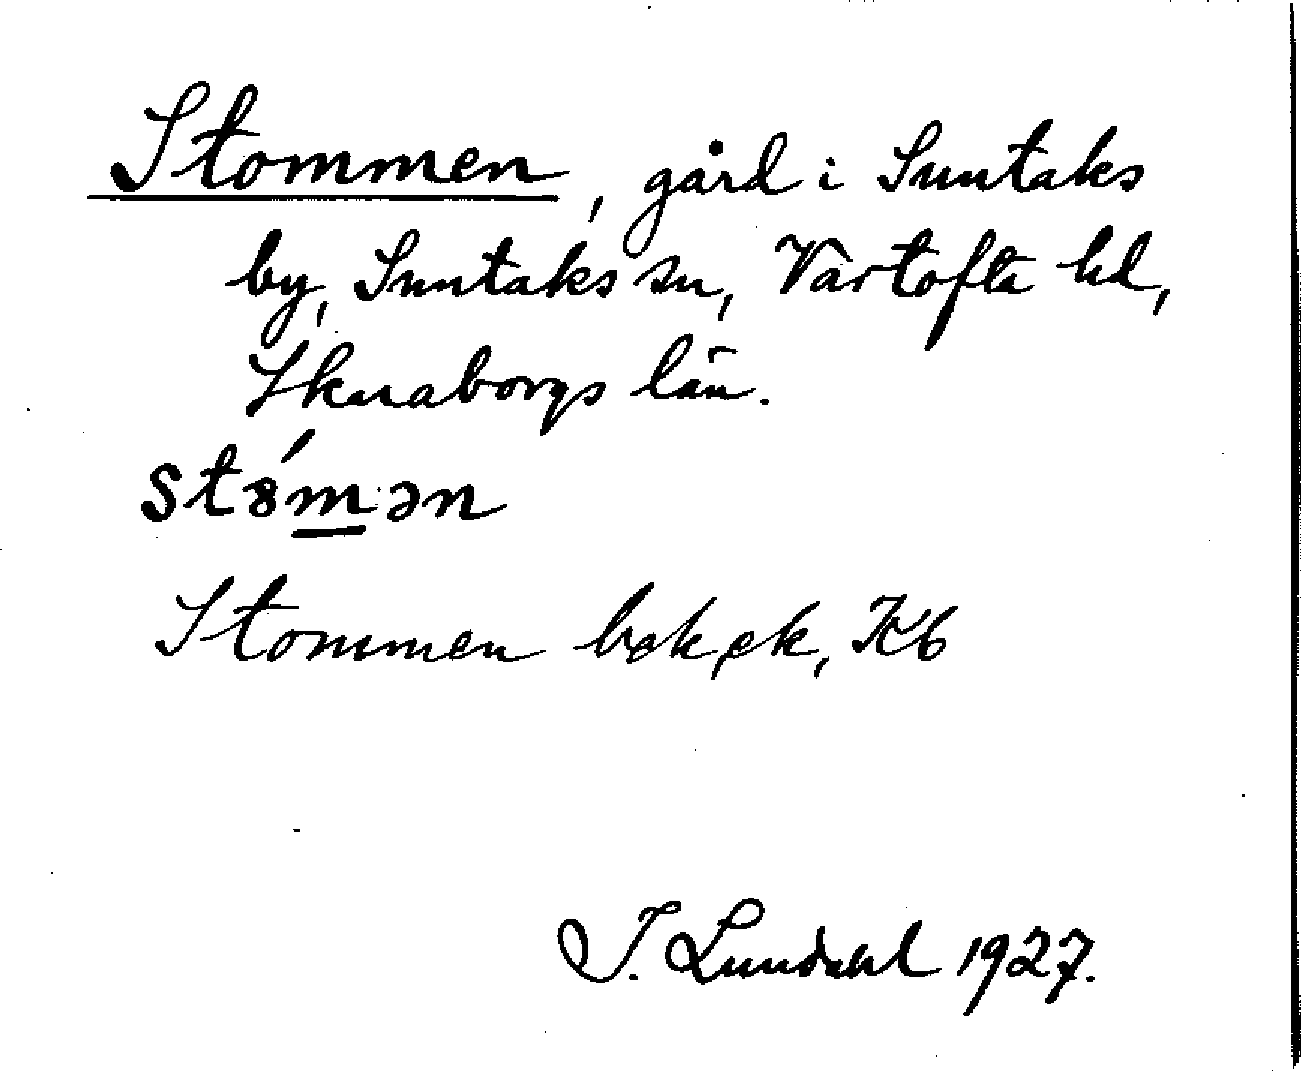 Stommen, gård i Suntaks
by, Suntaks sn, Vartofta hd,
Skaraborgs län.
Stommen
J. Lundahl 1927.